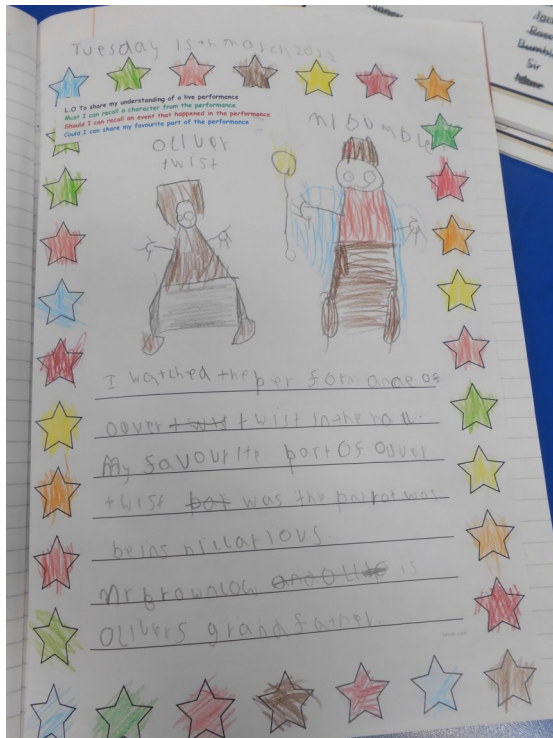 Tuesday 15th march 2022
L.O To share my understanding of a live performance
Must I can recall a character from the performance
Should I can recall an event that happened in the performance
Could I can share my favourite part of the performance
oliver
twist
I watched the per formance of
twist in the
My favourite part of oliver
twist was the parrot was
being hillarious.
Mr brownlow is
Olivers grandfather.
Sir